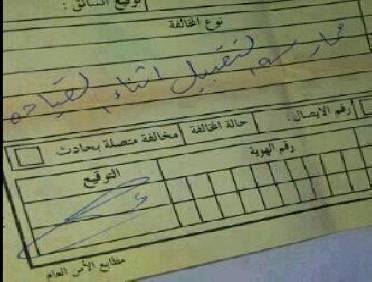 توقيع السائق :
نوع المخالفة
ممارسه لتقبيل اثناء القياده
رقم الايصال : حالة المخالفة مخالفة متصلة بحادث
رقم الهوية
التوقيع
مطابع الأمن العام